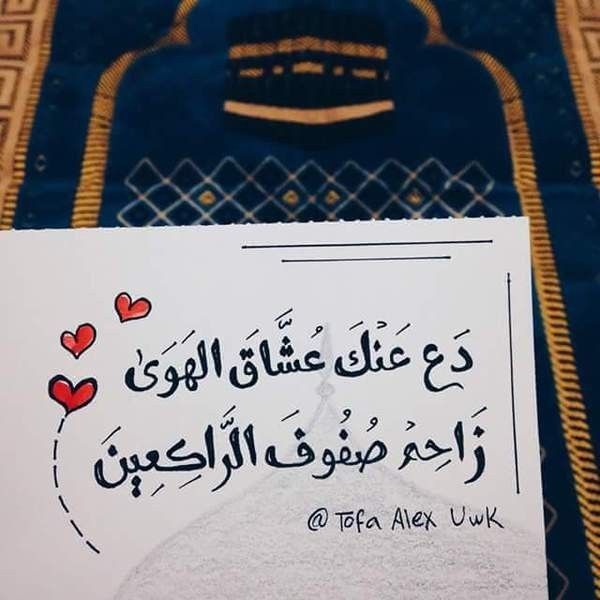 دَع عَنْكَ عُشَّاقَ الهَوَىٰ
زَاحِمْ صُفُوفَ الرَّاكِعِينَ
@ Tofa Alex Uwk